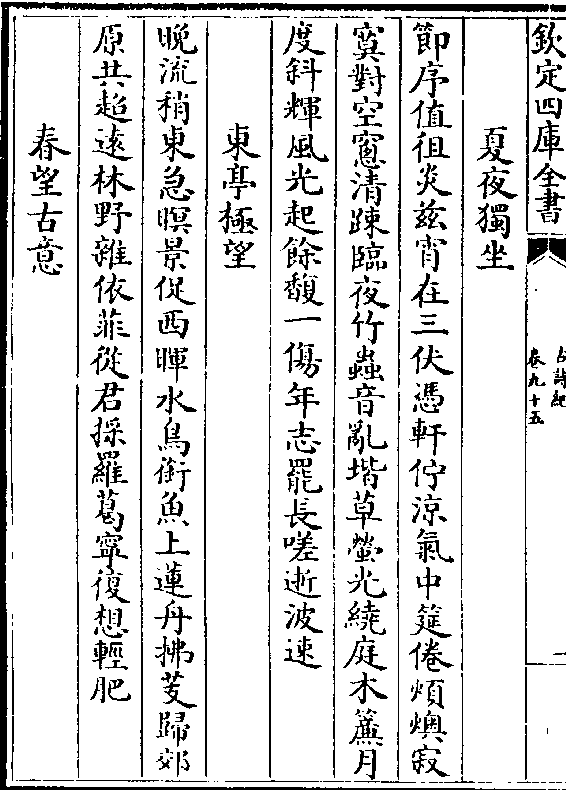 欽定四庫全書
古詩紀
卷九十五
夏夜獨坐
節序值徂炎兹宵在三伏憑軒佇涼氣中筵倦煩燠寂
寞對空窻清踈臨夜竹蟲音亂堦草螢光繞庭木簾月
度斜輝風光起餘馥一傷年志罷長嗟逝波速
東亭極望
晚流稍東急暝景促西暉水鳥銜魚上蓮舟拂芰歸郊
原共超逺林野雜依菲從君採羅葛寧復想輕肥
春望古意